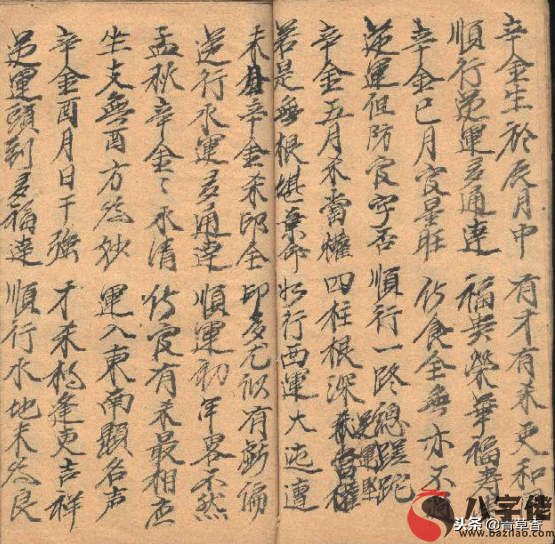 辛金生於辰月中 有才有未更和
順行逆運多通達 福貴榮華福壽
辛金巳月官星旺 傷食全無亦不
逆運但防官字否 順行一路總蹉跎
辛金五月不當權 四柱根深
若是無根繼棄命 行西運大迍邅
未月辛金未印全 印多尤似有虧偏
逆行水運多通達 順運初年畧不然
孟秋辛金金水清 傷官有未最相宜
坐支無酉方為妙 運入東南顯名声
辛金酉月日干強 才未相逢更吉祥
逆運頭到多福達 順行水地未為良
八字佬
www.bazilao.com
头条 @青草青